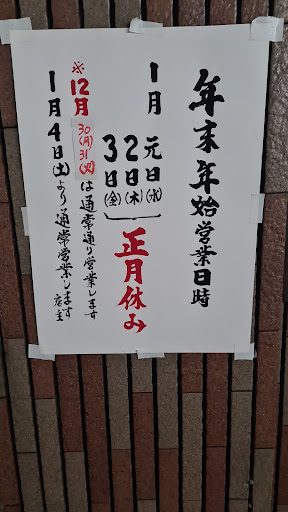 年末年始営業日時
1月 元日(水)
2日(木)
3日(金)
正月休み
※12月 30(月) 31(火) は通常通り営業します
1月4日(土)より通常営業します 店主